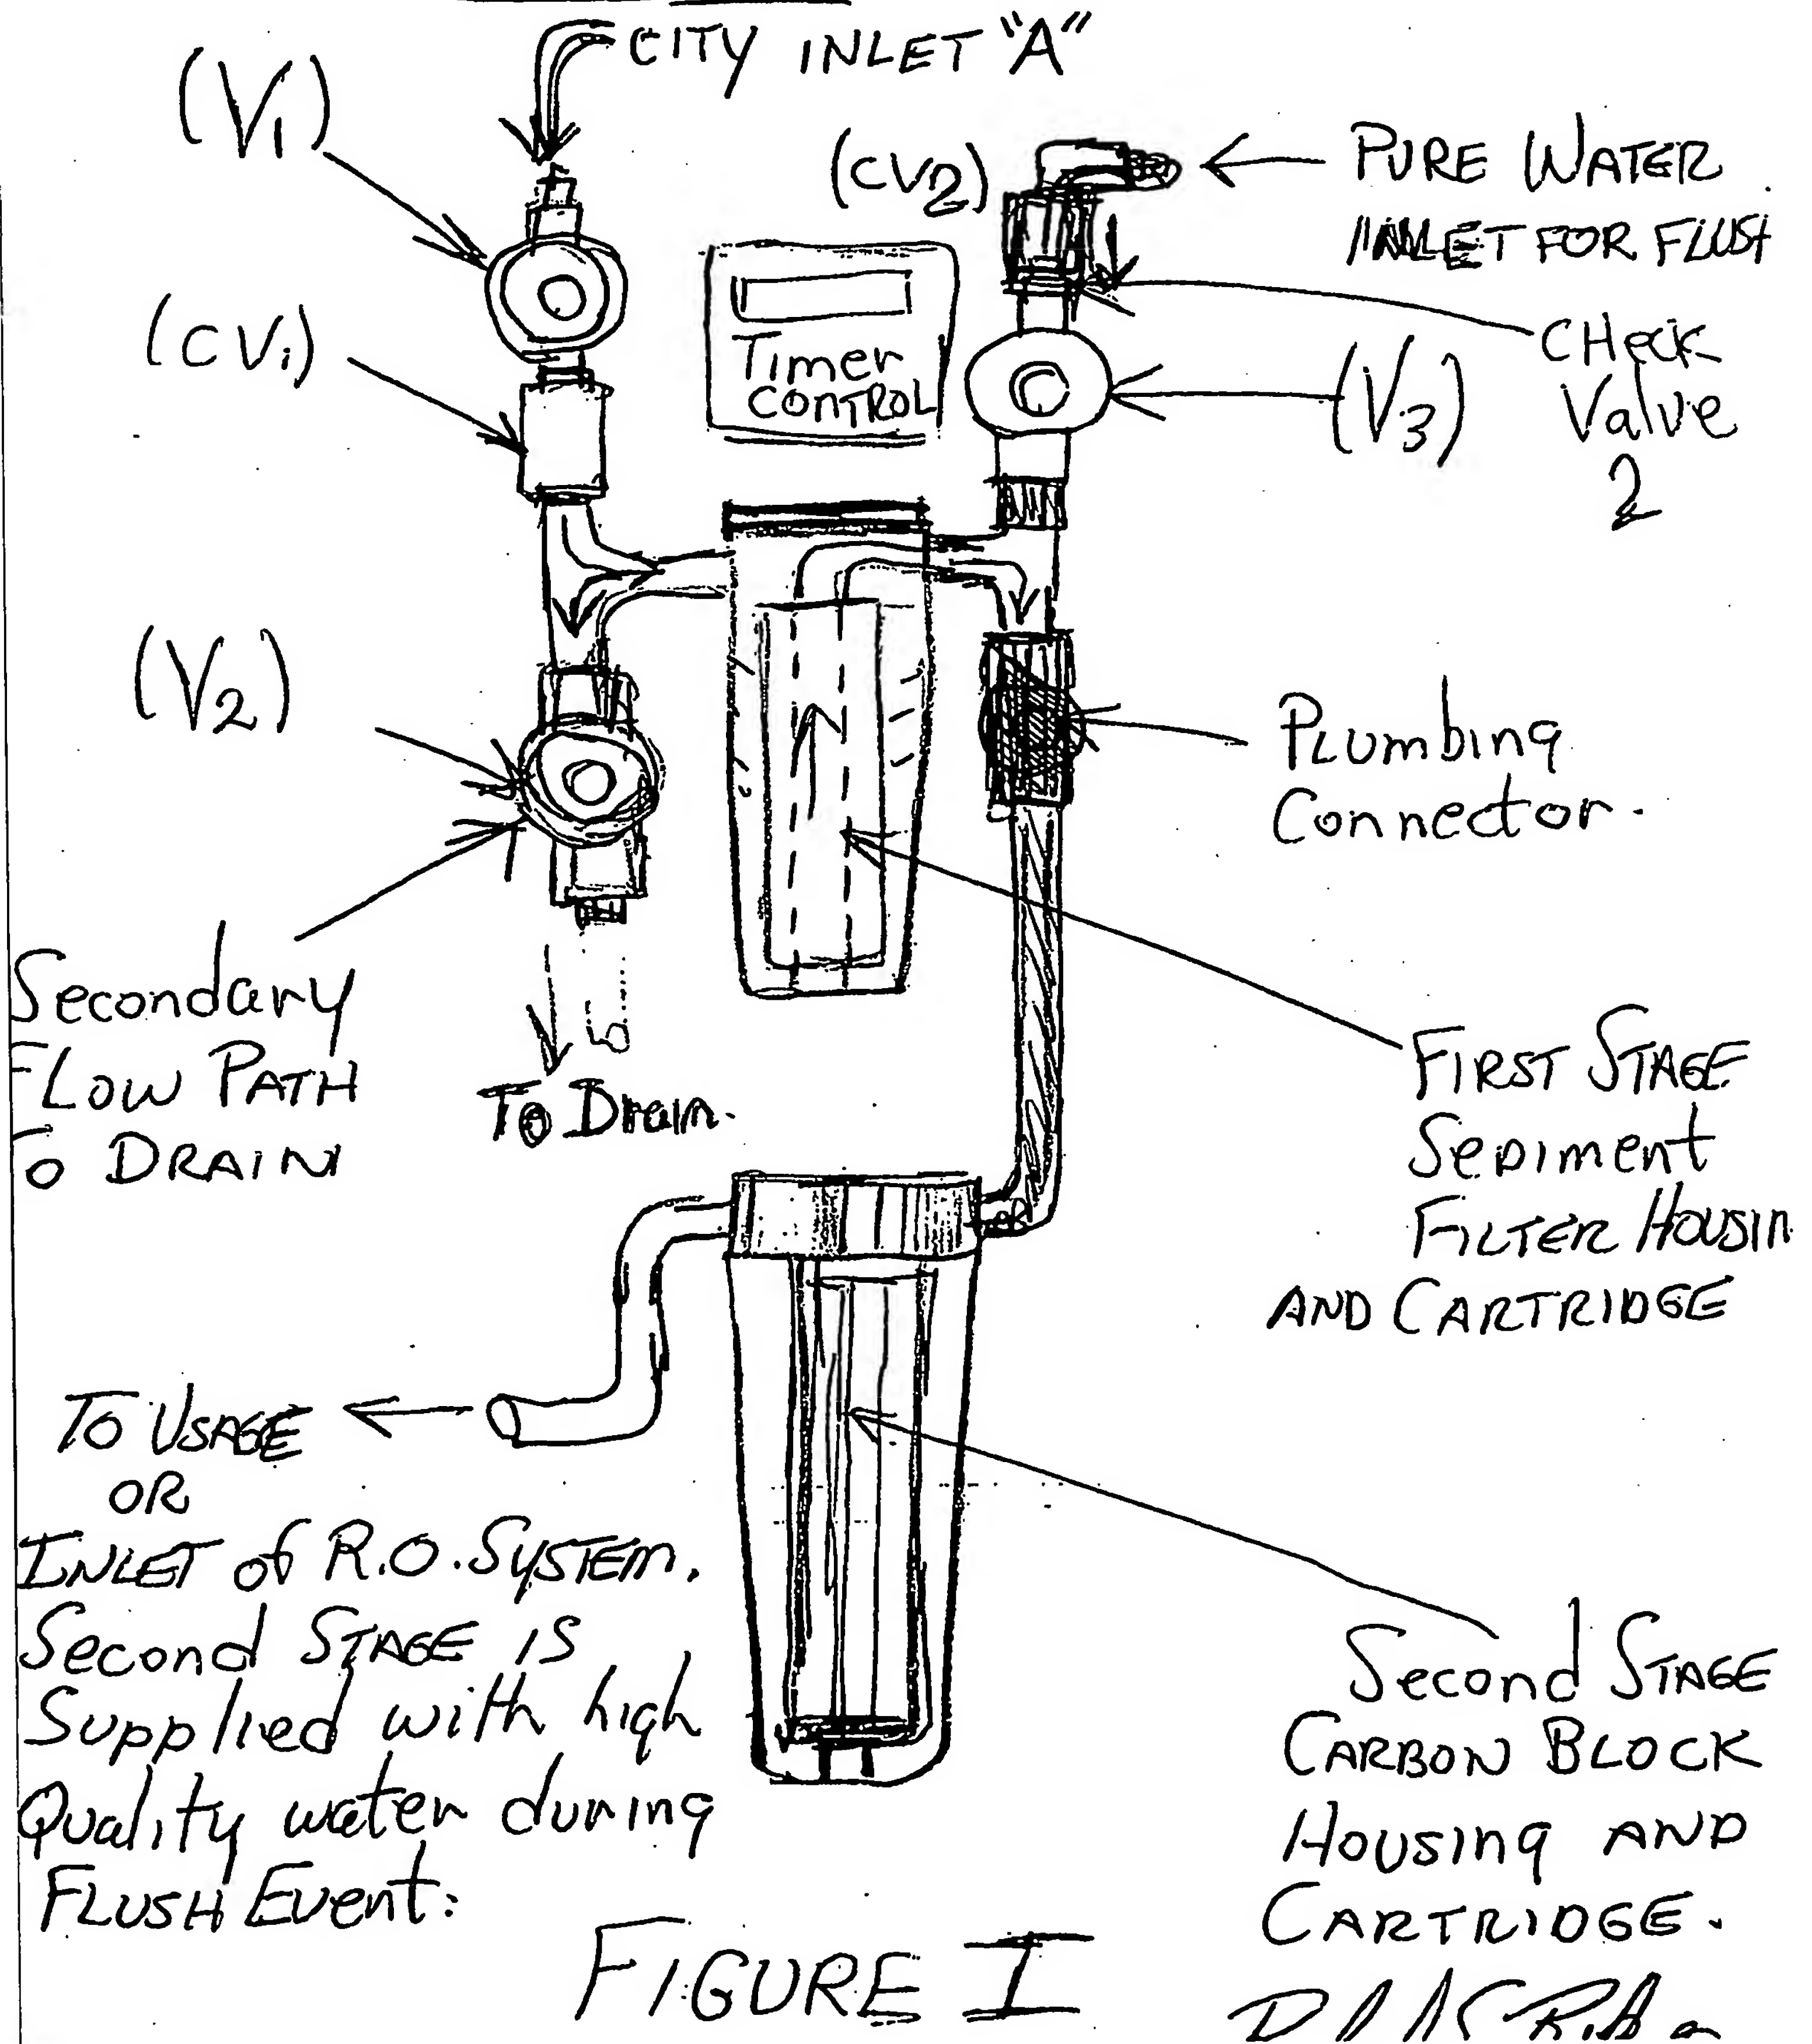 CITY INLET "A"
(V1)
(CV2)
PURE WATER
INLET FOR FLUSH
(CV1)
Timer
CONTROL
CHeck
Valve
2
(V3)
(V2)
Plumbing
Connector.
Secondary
FLOW PATH
To DRAIN
To Drain.
FIRST STAGE
SEDIMENT
FILTER HOUSIN
AND CARTRIDGE
TO USAGE
OR
INLET of R.O. SYSTEM.
Second STAGE IS
Supplied with high
Quality water during
FLUSH Event:
Second STAGE
CARBON BLOCK
HOUSING AND
CARTRIDGE.
FIGURE I